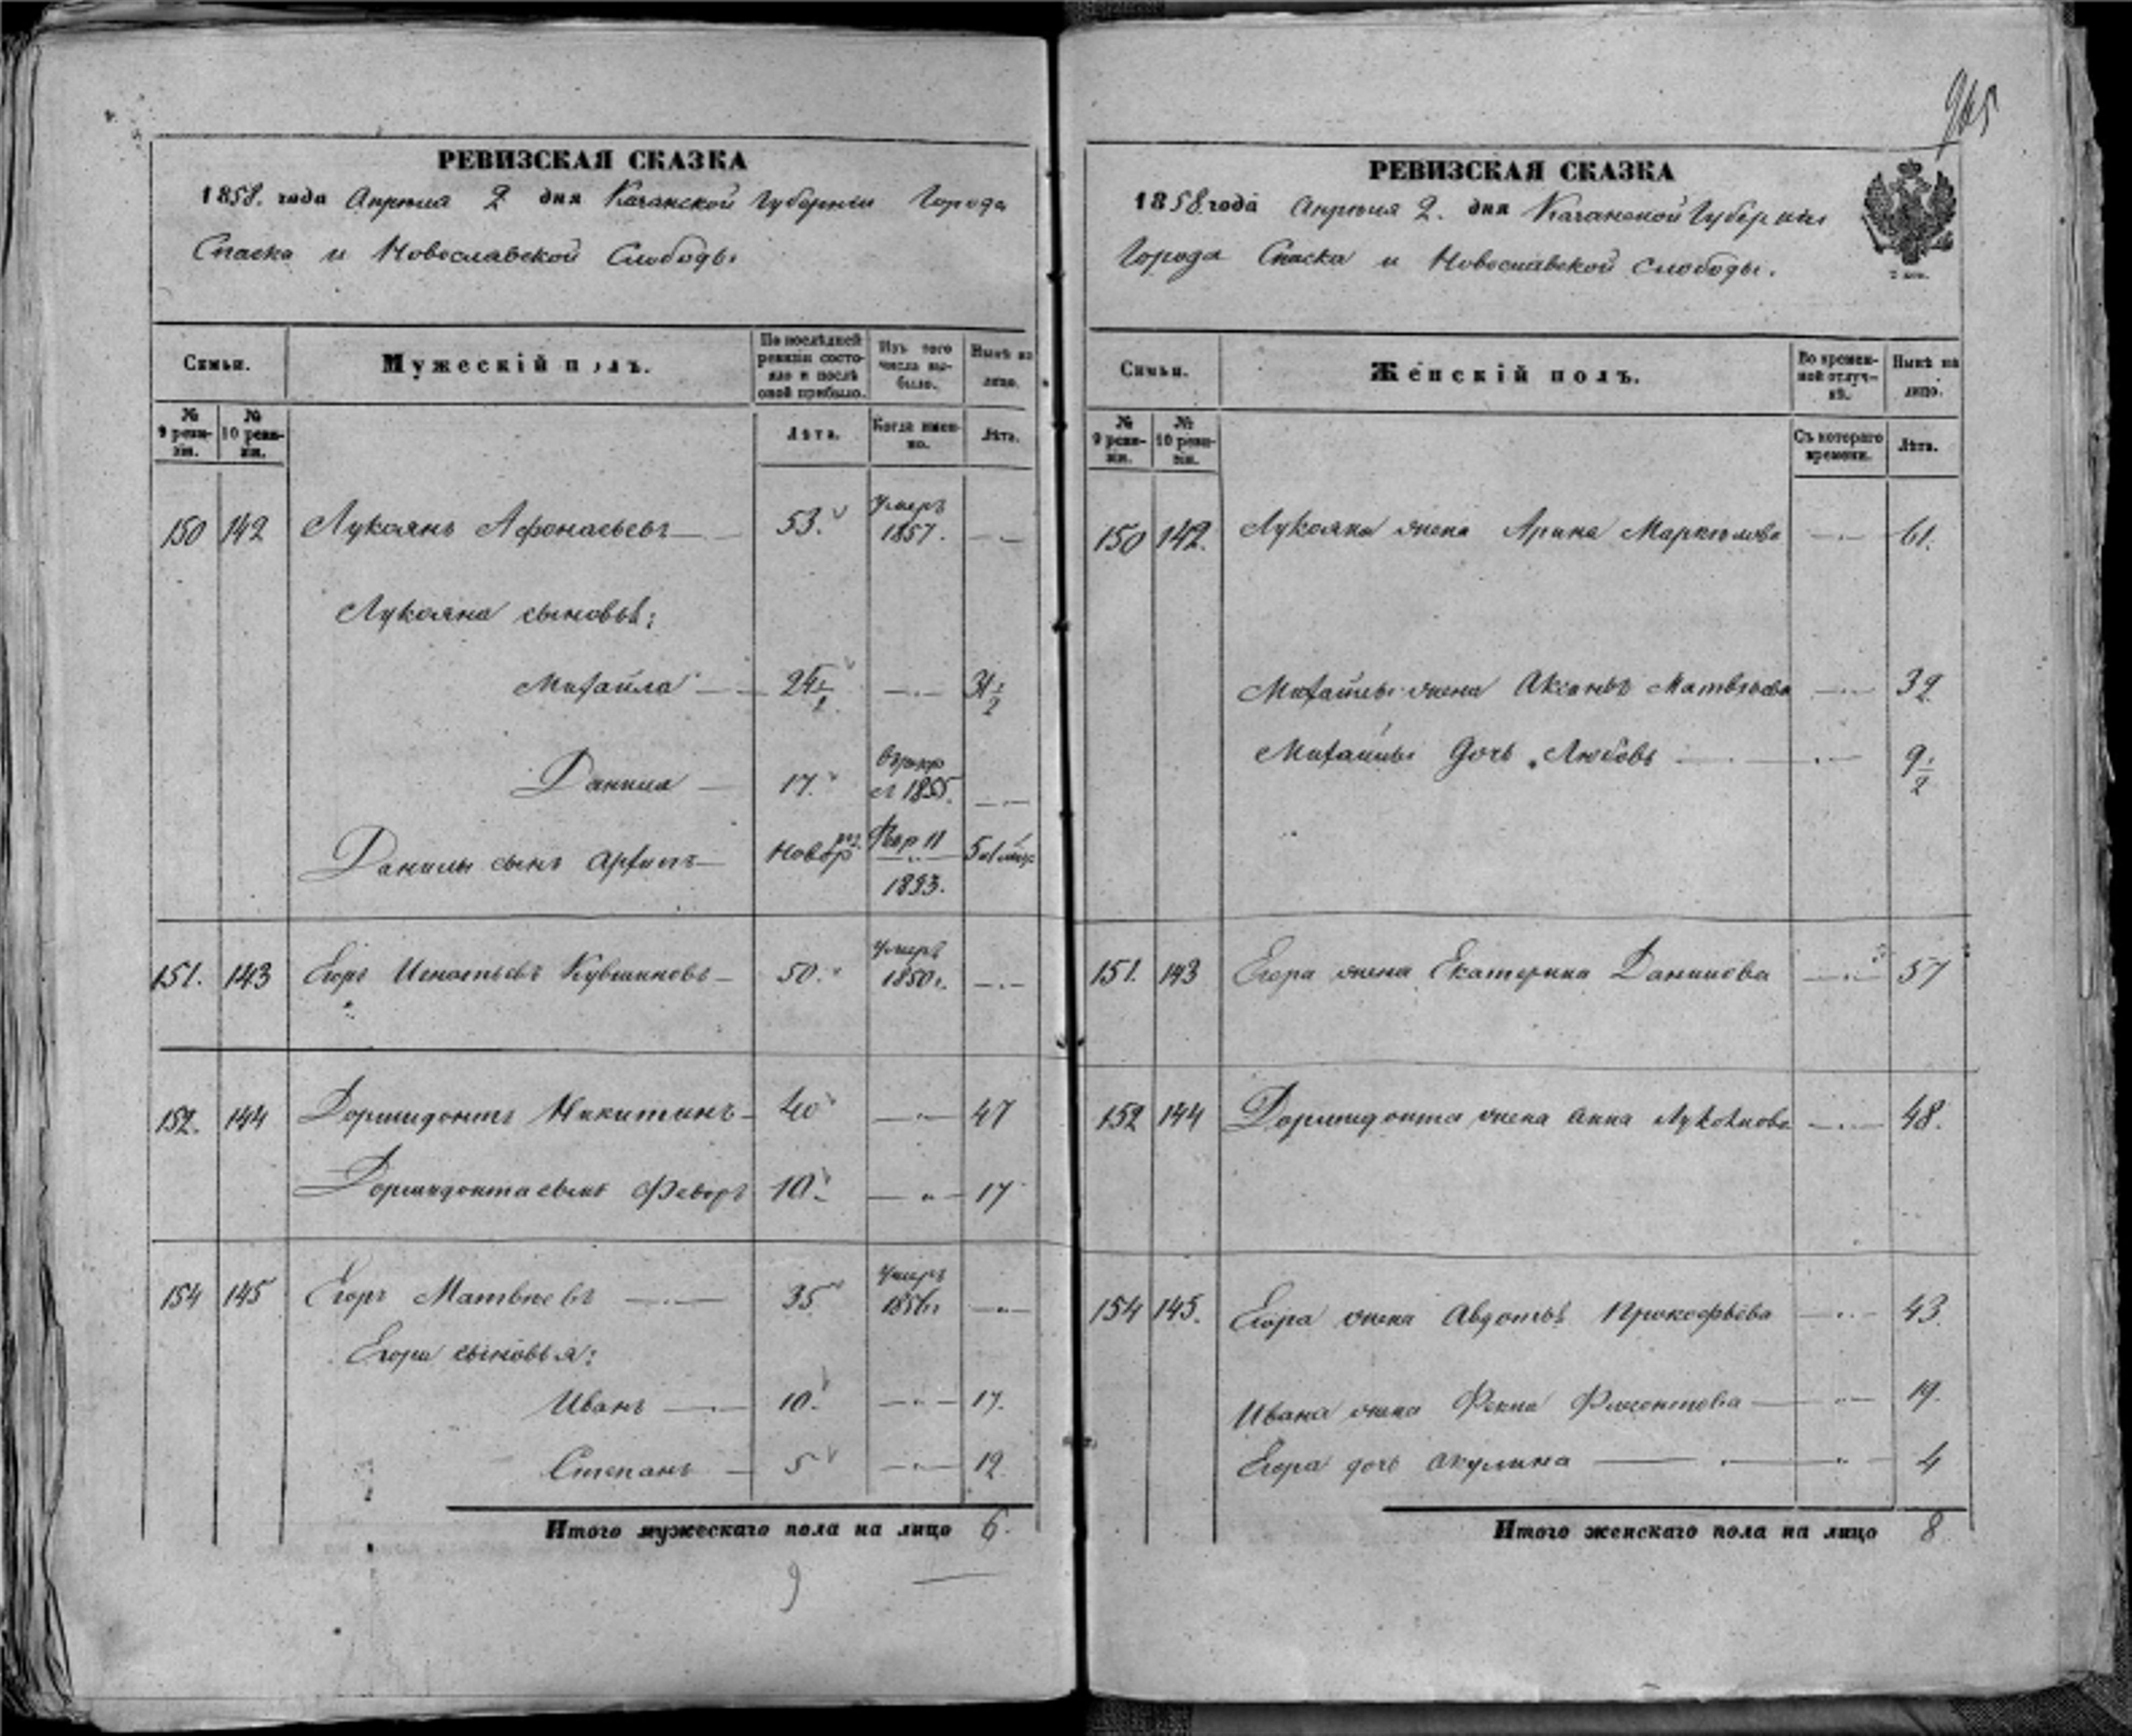 265
РЕВИЗСКАЯ СКАЗКА
1858. года Апреля 2 дня Казанской Губернии Города
Спаска и Новославской Слободы
Семьи.
Мужескій полъ.
По послѣдней ревизіи состояло и послѣ оной прибыло.
Изъ того числа выбыло.
Нынѣ на лицо.
№ 9 ревизіи.
№ 10 ревизіи.
Лѣта.
Когда именно.
Лѣта.
150 142 Лукоянъ Афонасьевъ 53. Умеръ 1857.
Лукояна сыновьѣ:
Михайла 24 1/2 31 1/2
Данила 17. 1855.
Данилы сынъ Архипъ Новор 11 1853. 5
151. 143 Егоръ Игнатьевъ Кувшиновъ 50. Умеръ 1850г.
152. 144 Дормидонтъ Никитинъ 40 47
Дормидонта сынъ Федоръ 10. 17
154 145 Егоръ Матвѣевъ 35 Умеръ 1856г
Егора сыновья:
Иванъ 10. 17.
Степанъ 5 12
Итого мужескаго пола на лицо 6.
9
РЕВИЗСКАЯ СКАЗКА
1858 года Апреля 2. дня Казанской Губерніи
Города Спаска и Новославской слободы.
2 коп.
Семьи.
Женскій полъ.
Во временной отлучкѣ.
Нынѣ на лицо.
№ 9 ревизіи.
№ 10 ревизіи.
Съ котораго времени.
Лѣта.
150 142. Лукояна жена Арина 61.
Михайлы жена Аксаньѣ Матвѣева 32
Михайлы дочь Любовь 9 1/2
151. 143 Егора жена Екатерина Данилова 57
152 144 Дормидонта жена Анна Лукоянова 48.
154 145. Егора жена Авдотьѣ Прокофьева 43.
Ивана жена 19.
Егора дочь Акулина 4
Итого женскаго пола на лицо 8